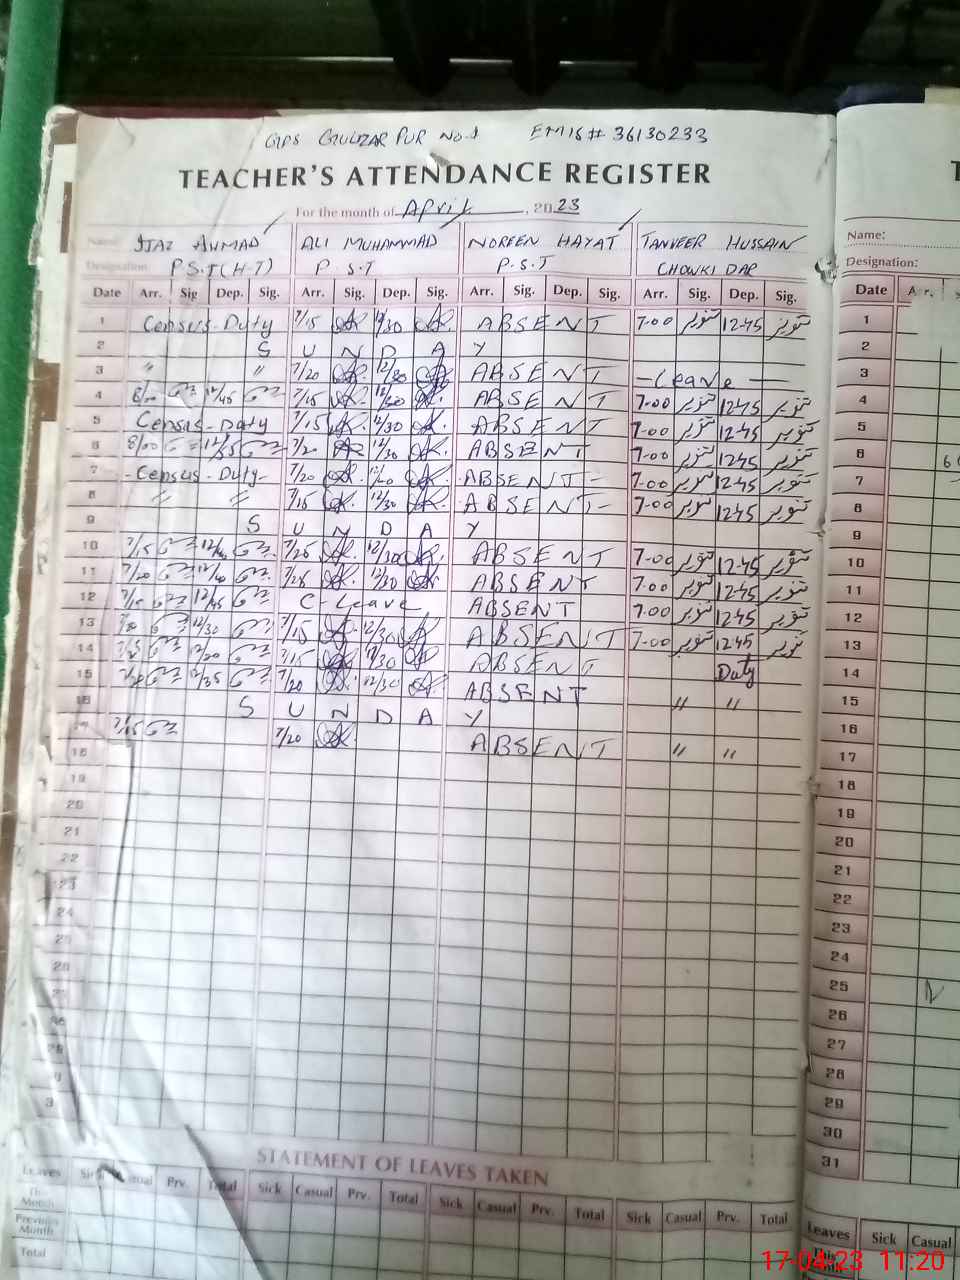 GPS GULZAR PUR No.1 EMIS# 36130233
TEACHER'S ATTENDANCE REGISTER
For the month of April, 2023
Name: IJAZ AHMAD ALI MUHAMMAD NOREEN HAYAT TANVEER HUSSAIN Name:
Designation: P.S.T(H-T) P.S.T P.S.T CHOWKI DAR Designation:
Date Arr. Sig Dep. Sig. Arr. Sig. Dep. Sig. Arr. Sig. Dep. Sig. Arr. Sig. Dep. Sig. Date Arr.
1 Census-Duty 7/15 12/30 ABSENT 7-00 تنویر 12-45 تنویر 1
2 SUNDAY 2
3 " " 7/20 12/30 ABSENT -Leave- 3
4 8/00 12/45 7/15 ABSENT 7-00 تنویر 12-45 تنویر 4
5 Census-Duty 7/15 12/30 ABSENT 7-00 تنویر 12-45 تنویر 5
6 8/00 12/35 7/20 12/30 ABSENT 7-00 تنویر 12-45 تنویر 6
7 -Census-Duty- 7/20 ABSENT- 7-00 تنویر 12-45 تنویر 7
8 " " 7/15 12/30 ABSENT- 7-00 تنویر 12-45 تنویر 8
9 SUNDAY 9
10 7/15 7/25 12/30 ABSENT 7-00 تنویر 12-45 تنویر 10
11 7/20 12/40 7/25 12/30 ABSENT 7-00 تنویر 12-45 تنویر 11
12 12/45 C-Leave ABSENT 7-00 تنویر 12-45 تنویر 12
13 12/30 7/15 12/30 ABSENT 7-00 تنویر 12-45 تنویر 13
14 7/15 12/30 ABSENT Duty 14
15 12/35 7/20 12/30 ABSENT " " 15
16 SUNDAY 16
17 7/15 7/20 ABSENT " " 17
18 18
19 19
20 20
21 21
22 22
23 23
24 24
25 25
26 26
27
28
29 29
30
31
STATEMENT OF LEAVES TAKEN
Leaves Sick Casual Prv. Total Sick Casual Prv. Total Sick Casual Prv. Total Sick Casual Prv. Total Leaves Sick Casual
This Month
Previous Month
Total
17-04-23 11:20